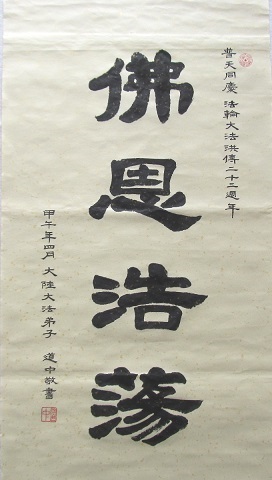 普天同慶 法輪大法洪傳二十二週年
佛恩浩蕩
甲午年四月 大陸大法弟子 道中敬書